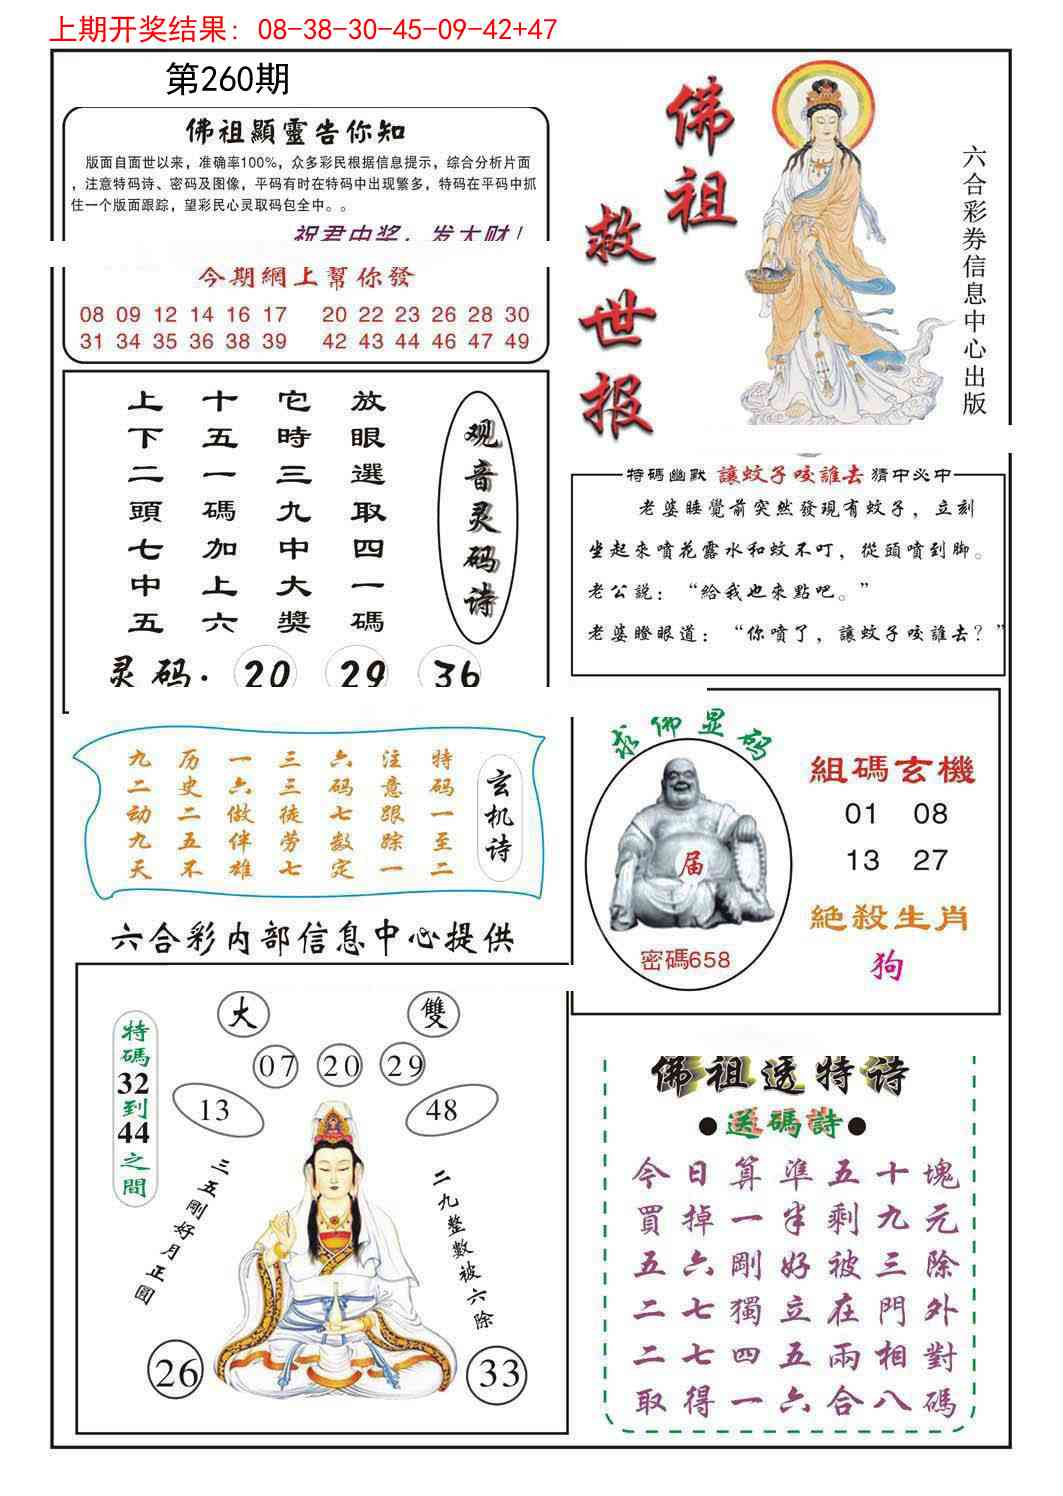 上期开奖结果：08-38-30-45-09-42+47
第260期
佛祖顯靈告你知
版面自面世以来，准确率100%，众多彩民根据信息提示，综合分析片面
，注意特码诗、密码及图像，平码有时在特码中出现繁多，特码在平码中抓
住一个版面跟踪，望彩民心灵取码包全中。。
祝君中奖，发大财！
今期網上幫你發
08 09 12 14 16 17 20 22 23 26 28 30
31 34 35 36 38 39 42 43 44 46 47 49
佛祖
救世报
六合彩券信息中心出版
观音灵码诗
放眼選取四一碼
它時三九中大獎
十五一碼加上六
上下二頭七中五
灵码. 20 29 36
特碼幽默 讓蚊子咬誰去 猜中必中
老婆睡覺前突然發現有蚊子，立刻
坐起來噴花露水和蚊不叮，從頭噴到脚。
老公説：“給我也來點吧。”
老婆瞪眼道：“你噴了，讓蚊子咬誰去？”
玄机诗
特码一至二
注意跟踪一
六码七数定
三三徒劳七
一六做伴雄
历史二五不
九二动九天
求佛显码
届
密碼658
組碼玄機
01 08
13 27
絕殺生肖
狗
六合彩内部信息中心提供
特碼32到44之間
大 雙
07 20 29
13 48
三五剛好月正圓
二九整數被六除
26 33
佛祖透特诗
●送碼詩●
今日算準五十塊
買掉一半剩九元
五六剛好被三除
二七獨立在門外
二七四五兩相對
取得一六合八碼